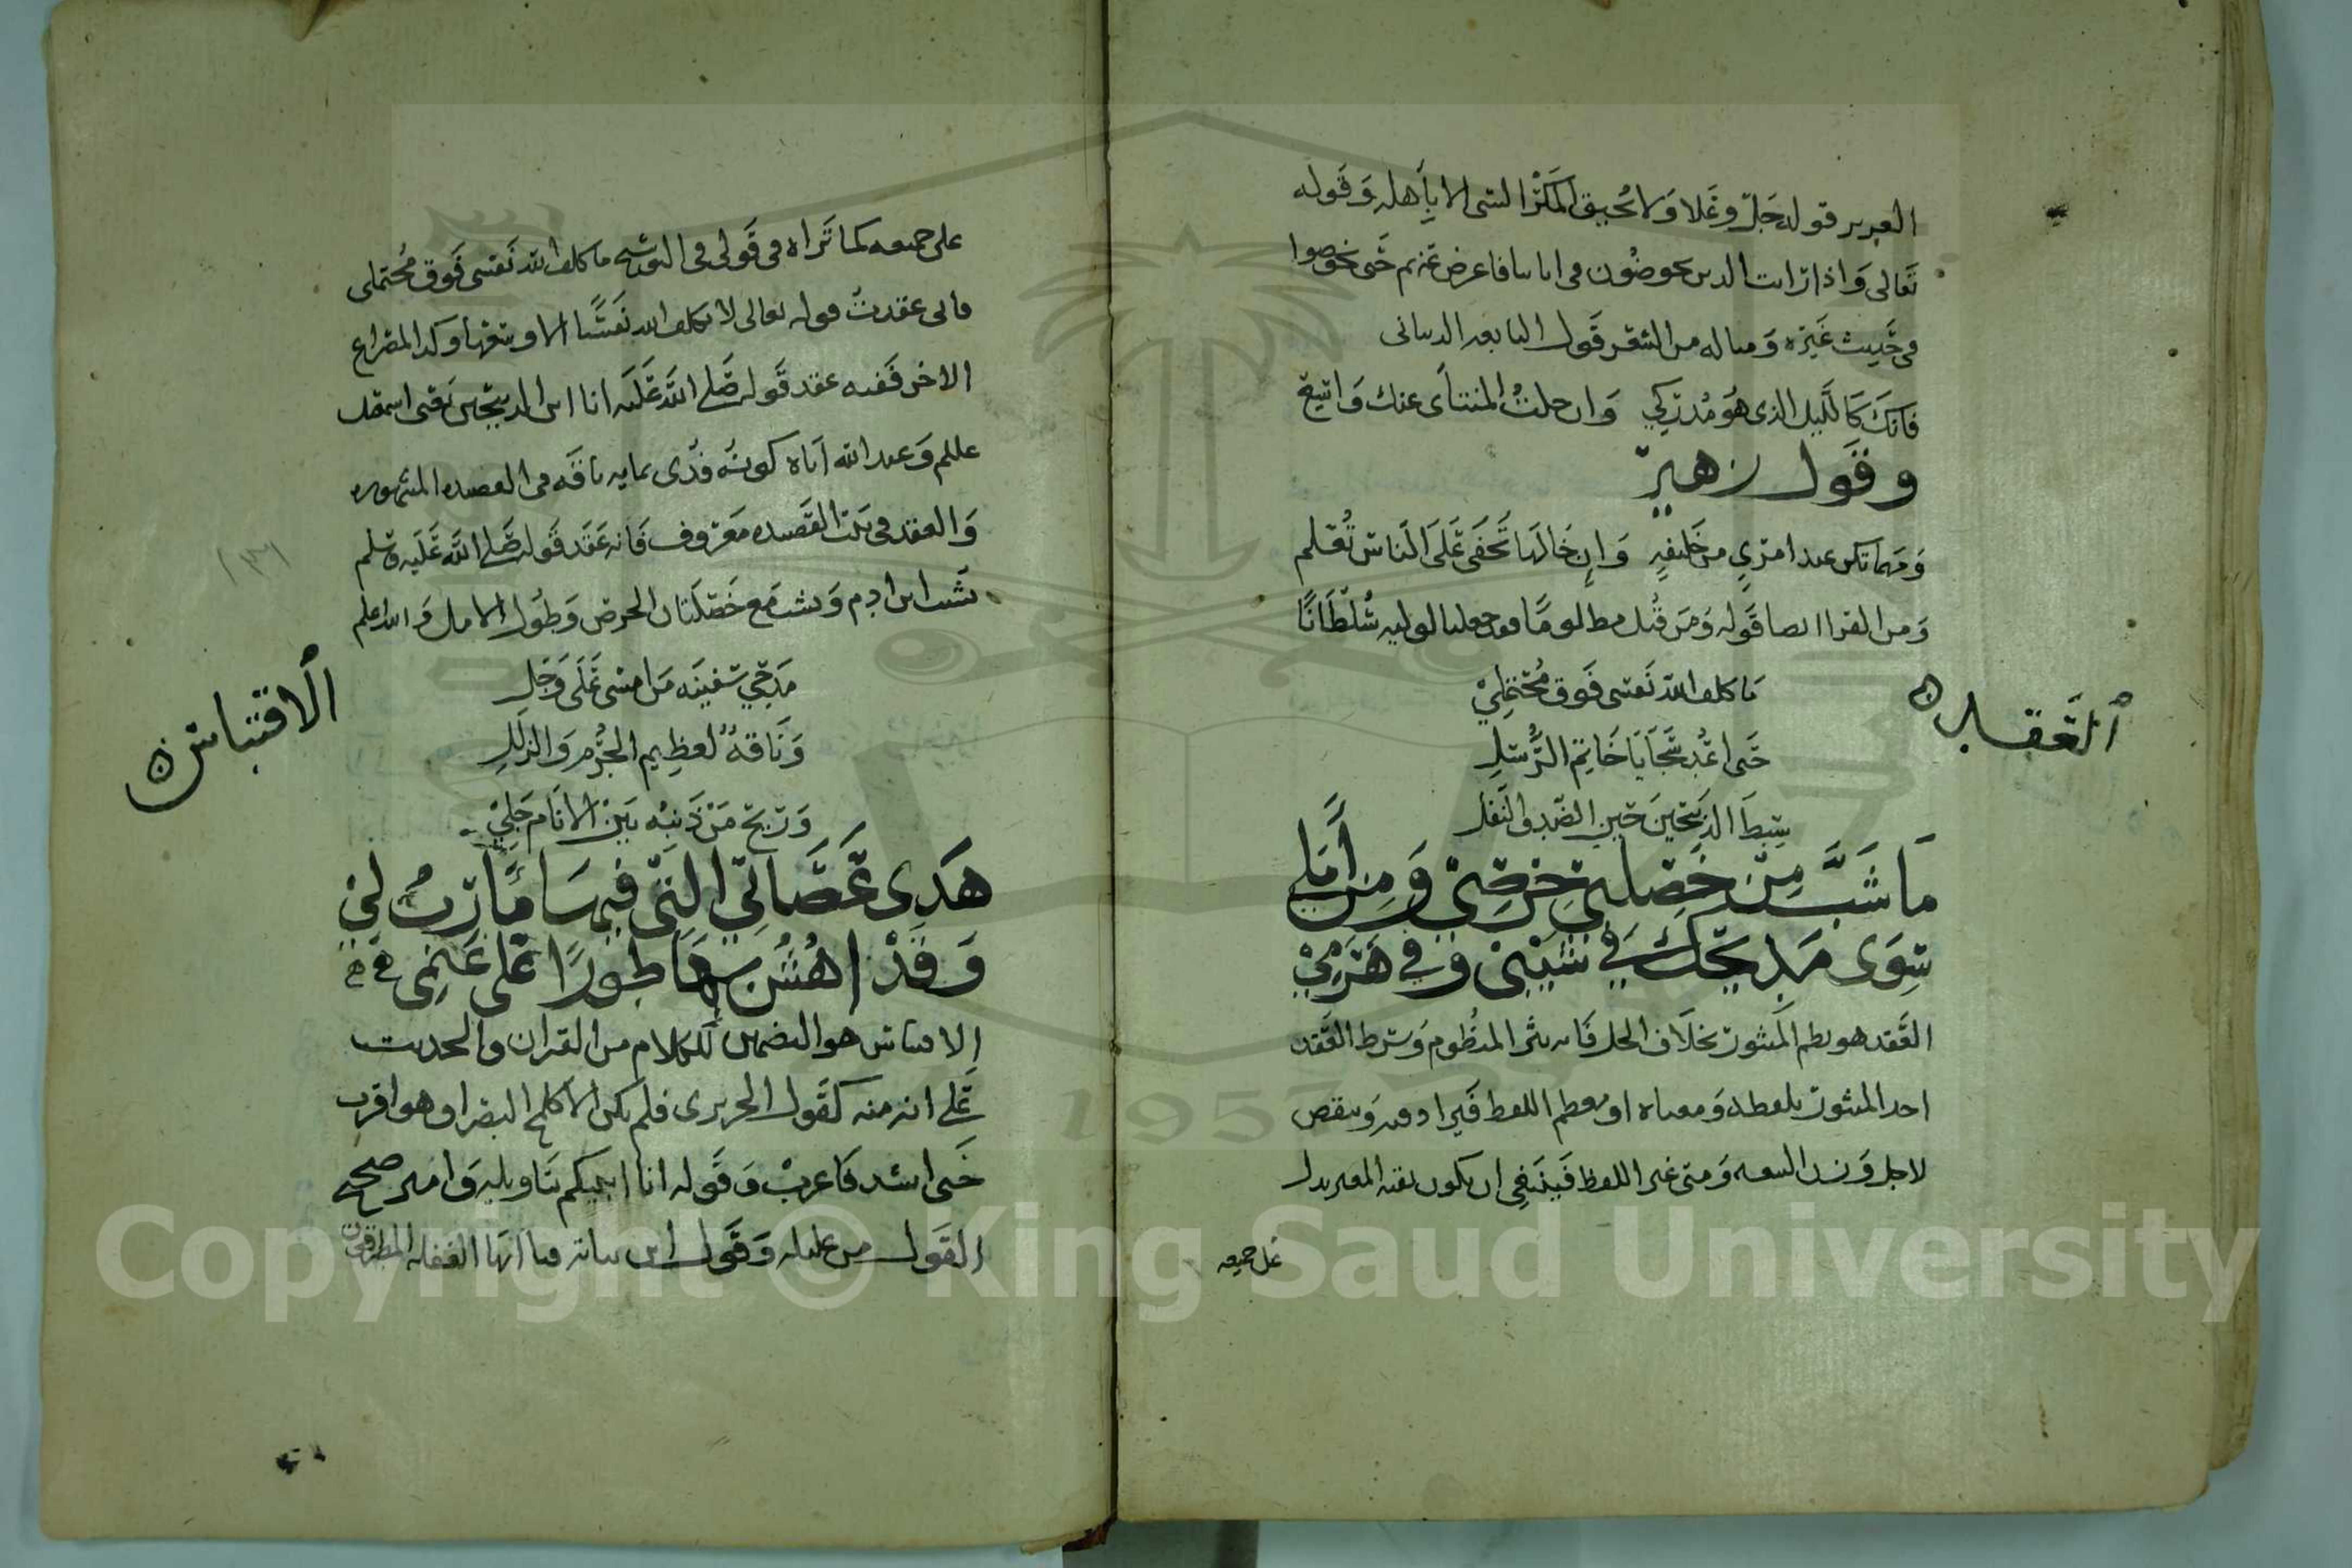 العزيز قوله جل وعلا ولا يحيق المكر السي الا بأهله وقوله
تعالى واذا رايت الذين يخوضون في اياتنا فاعرض عنهم حتى يخوضوا
في حديث غيره ومثاله من الشعر قول النابغه الذبياني
فانك كالليل الذي هو مدركي وان خلت المنتأى عنك واسع
وقول زهير
ومهما تكن عند امرئ من خليقه وان خالها تخفى على الناس تعلم
ومن القران ايضا قوله ومن قتل مظلوما فقد جعلنا لوليه سلطانا
العقد
ما كلف الله نفسي فوق محتملي
حتى اعد سجايا خاتم الرسل
سبط الذبيحين حين الضد والنفل
ما شب من خصلتي حرصي ومن أملي
سوى مديحك في شيبي وفي هرمي
العقد هو نظم المنثور بخلاف الحل فانه نثر المنظوم وشرط العقد
اخذ المنثور بلفظه ومعناه او معظم اللفظ فيزاد فيه وينقص
لاجل وزن الشعر ومتى غير اللفظ فينبغي ان يكون بقيه المغير يدل
على جميعه
على جميعه كما تراه في قولي في التوشيه ما كلف الله نفسي فوق محتملي
فاني عقدت قوله تعالى لا يكلف الله نفسا الا وسعها وكذا المصراع
الاخر ففيه عقد قوله صلى الله عليه انا ابن الذبيحين يعني اسمعيل
وعبد الله اباه كونه فدى بمايه ناقه في القصه المشهوره
والعقد في بيت القصيده معروف فانه عقد قوله صلى الله عليه وسلم
يشب ابن ادم ويشب مع خصلتان الحرص وطول الامل والله اعلم
الاقتباس
مدحي سفينه من امسى على وجل
وناقة لعظيم الجرم والزلل
وربح من ذنبه بين الانام جلي
هذي عصاتي التي فيها مآرب لي
وقد اهش بها طورا على غنمي
الاقتباس هو التضمين للكلام من القران والحديث
على انه منه كقول الحريري فلم يكن الا كلمح البصر او هو اقرب
حتى انشد فاغرب وقوله انا انبيكم بتاويله واميز صحيح
القول من عليله وقول ابن نباته فيا ايها الغفله المطرقون